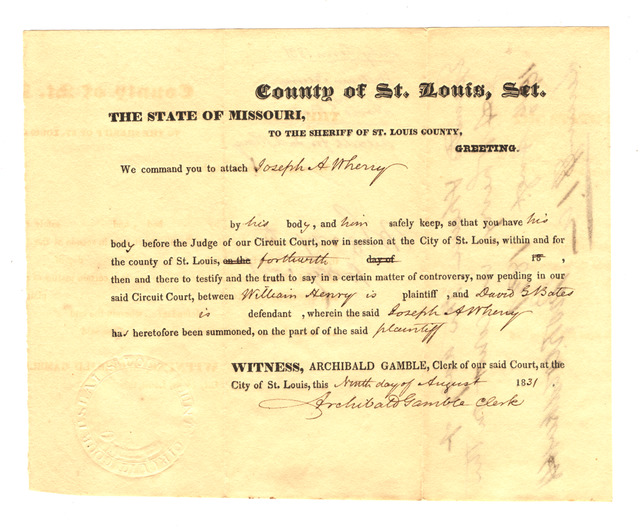 County of St. Louis, Sct.
THE STATE OF MISSOURI,
TO THE SHERIFF OF ST. LOUIS COUNTY,
GREETING.
We command you to attach Joseph A Wherry
by his body, and him safely keep, so that you have his
body before the Judge of our Circuit Court, now in session at the City of St. Louis, within and for
the county of St. Louis, on the forthwith day of 18 ,
then and there to testify and the truth to say in a certain matter of controversy, now pending in our
said Circuit Court, between William Henry is plaintiff, and David G Bates
is defendant, wherein the said Joseph A Wherry
has heretofore been summoned, on the part of of the said plaintiff
WITNESS, ARCHIBALD GAMBLE, Clerk of our said Court, at the
City of St. Louis, this Ninth day of August 1831.
Archibald Gamble Clerk